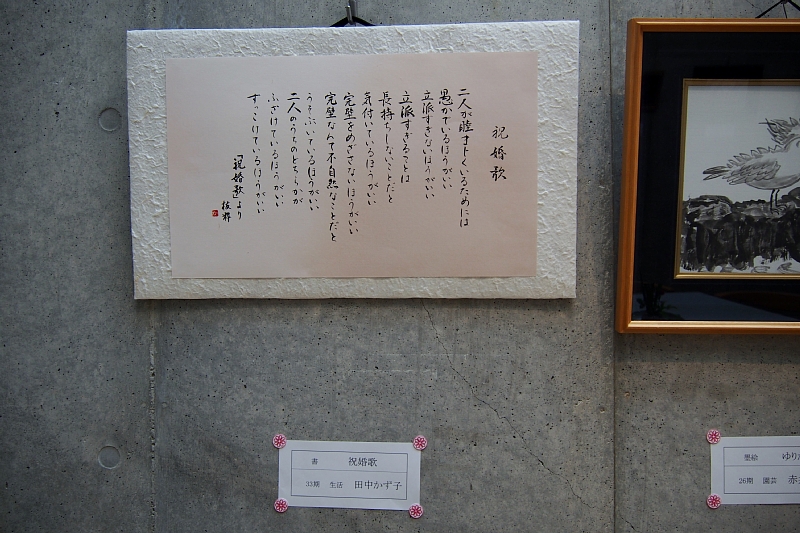 祝婚歌
二人が睦まじくいるためには
愚かでいるほうがいい
立派すぎないほうがいい
立派すぎることは
長持ちしないことだと
気付いているほうがいい
完璧をめざさないほうがいい
完璧なんて不自然なことだと
うそぶいているほうがいい
二人のうちのどちらかが
ふざけているほうがいい
ずっこけているほうがいい
「祝婚歌」より
抜粋
書 祝婚歌
33期 生活 田中かず子
墨絵 ゆり
26期 園芸 赤